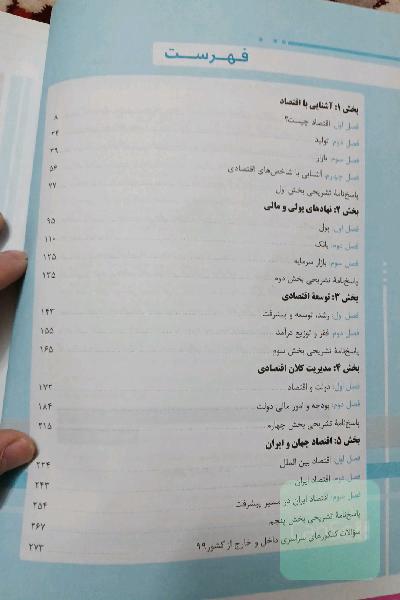 فهرست
بخش ۱: آشنایی با اقتصاد
فصل اول: اقتصاد چیست؟ ۸
فصل دوم: تولید ۲۴
فصل سوم: بازار ۳۹
فصل چهارم: آشنایی با شاخص‌های اقتصادی ۵۶
پاسخ‌نامهٔ تشریحی بخش اول ۷۷
بخش ۲: نهادهای پولی و مالی
فصل اول: پول ۹۵
فصل دوم: بانک ۱۱۰
فصل سوم: بازار سرمایه ۱۲۵
پاسخ‌نامهٔ تشریحی بخش دوم ۱۳۵
بخش ۳: توسعهٔ اقتصادی
فصل اول: رشد، توسعه و پیشرفت ۱۴۳
فصل دوم: فقر و توزیع درآمد ۱۵۵
پاسخ‌نامهٔ تشریحی بخش سوم ۱۶۵
بخش ۴: مدیریت کلان اقتصادی
فصل اول: دولت و اقتصاد ۱۷۳
فصل دوم: بودجه و امور مالی دولت ۱۸۴
پاسخ‌نامهٔ تشریحی بخش چهارم ۲۱۵
بخش ۵: اقتصاد جهان و ایران
فصل اول: اقتصاد بین الملل ۲۳۴
فصل دوم: اقتصاد ایران ۲۴۳
فصل سوم: اقتصاد ایران در مسیر پیشرفت ۲۵۴
پاسخ‌نامهٔ تشریحی بخش پنجم ۲۶۷
سؤالات کنکورهای سراسری داخل و خارج از کشور ۹۹ ۲۷۳